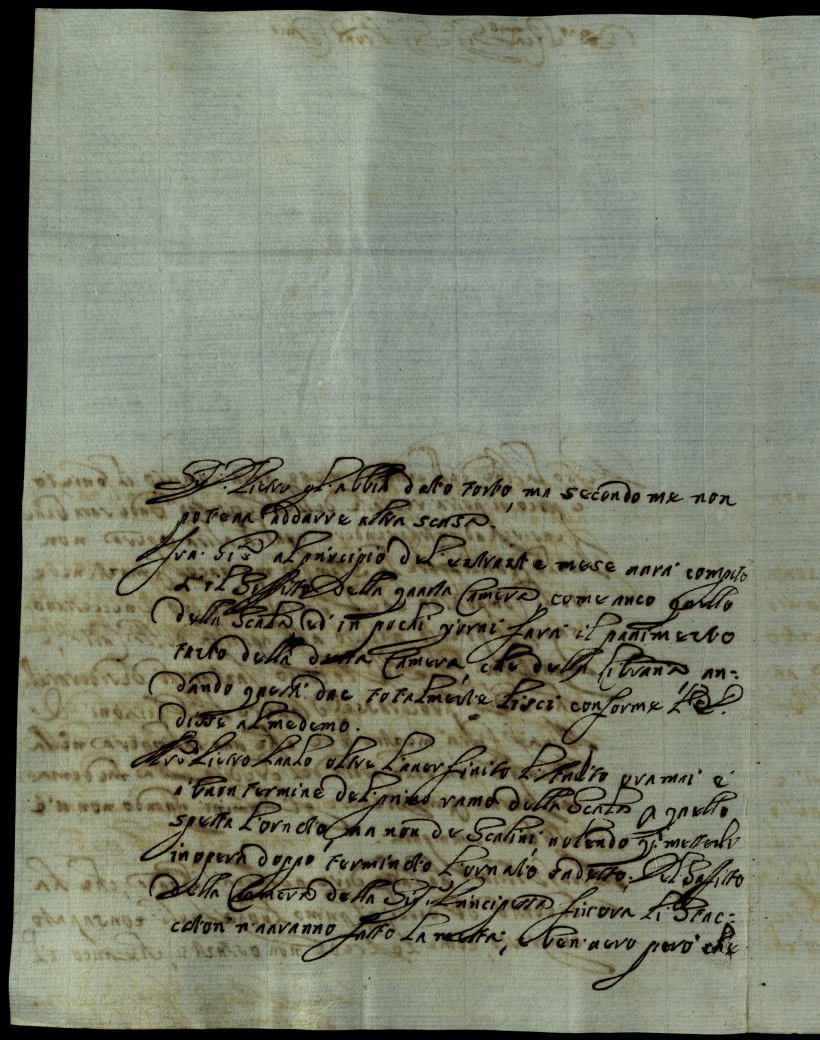 Sig.r Pietro gl'abbia dato torto, ma secondo me non
poteva addurre altra scasa.
Fra: Gio: al principio del' entrante mese avrà compito
il Soffitto della quarta Camera, come anco quello
della Scala, ed in pochi giorni sarà il pavimento
fatto della detta Camera, che della libraria, an:
dando questi due totalmente lisci conforme
disse al medemo.
Pietro Paolo oltre l'aver finito ormai è
a buon termine del primo ramo della Scala quello
spetta l'ornato, ma non de Scalini, volendo metterli
in opera doppo terminato l'ornato sudetto. Del Soffitto
della Camera della Sig.ra Principessa fin'ora li Stuc:
catori n'avranno fatto la metà, è ben vero però che